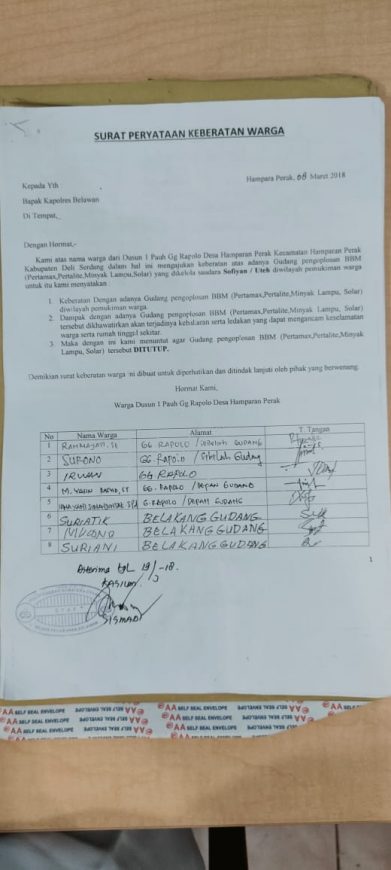 SURAT PERYATAAN KEBERATAN WARGA
Hampara Perak, 08 Maret 2018
Kepada Yth
Bapak Kapolres Belawan
Di Tempat,_
Dengan Hormat,-
Kami atas nama warga dari Dusun 1 Pauh Gg Rapolo Desa Hamparan Perak Kecamatan Hamparan Perak
Kabupaten Deli Serdang dalam hal ini mengajukan keberatan atas adanya Gudang pengoplosan BBM
(Pertamax,Pertalite,Minyak Lampu,Solar) yang dikelola saudara Sofiyan / Uteh diwilayah pemukiman warga
untuk itu kami menyatakan :
1. Keberatan Dengan adanya Gudang pengoplosan BBM (Pertamax,Pertalite,Minyak Lampu, Solar)
diwilayah pemukiman warga.
2. Dampak dengan adanya Gudang pengoplosan BBM (Pertamax,Pertalite,Minyak Lampu, Solar)
tersebut dikhawatirkan akan terjadinya kebakaran serta ledakan yang dapat mengancam keselamatan
warga serta rumah tinggal sekitar.
3. Maka dengan ini kami menuntut agar Gudang pengoplosan BBM (Pertamax,Pertalite,Minyak
Lampu, Solar) tersebut DITUTUP.
Demikian surat keberatan warga ini dibuat untuk diperhatikan dan ditindak lanjuti oleh pihak yang berwenang.
Hormat Kami,
Warga Dusun 1 Pauh Gg Rapolo Desa Hamparan Perak
No Nama Warga Alamat T. Tangan
1 RAHMAYATI.SE GG RAPOLO / SEBELAH GUDANG
2 SUPONO GG. RAPOLO / Sebelah Gudang
3 IRWAN GG RAPOLO
4 M. YALIN GG. RAPOLO / DEPAN GUDANG
5 G. RAPOLO / DEPAN GUDANG
6 SURIATIK BELAKANG GUDANG
7 BELAKANG GUDANG
8 SURIANI BELAKANG GUDANG
1
Diterima tgl
KASIUM
SISMADI
AA SELF SEAL ENVELOPE
AA SELF SEAL ENVELOPE
AA SELF SEAL ENVELOPE